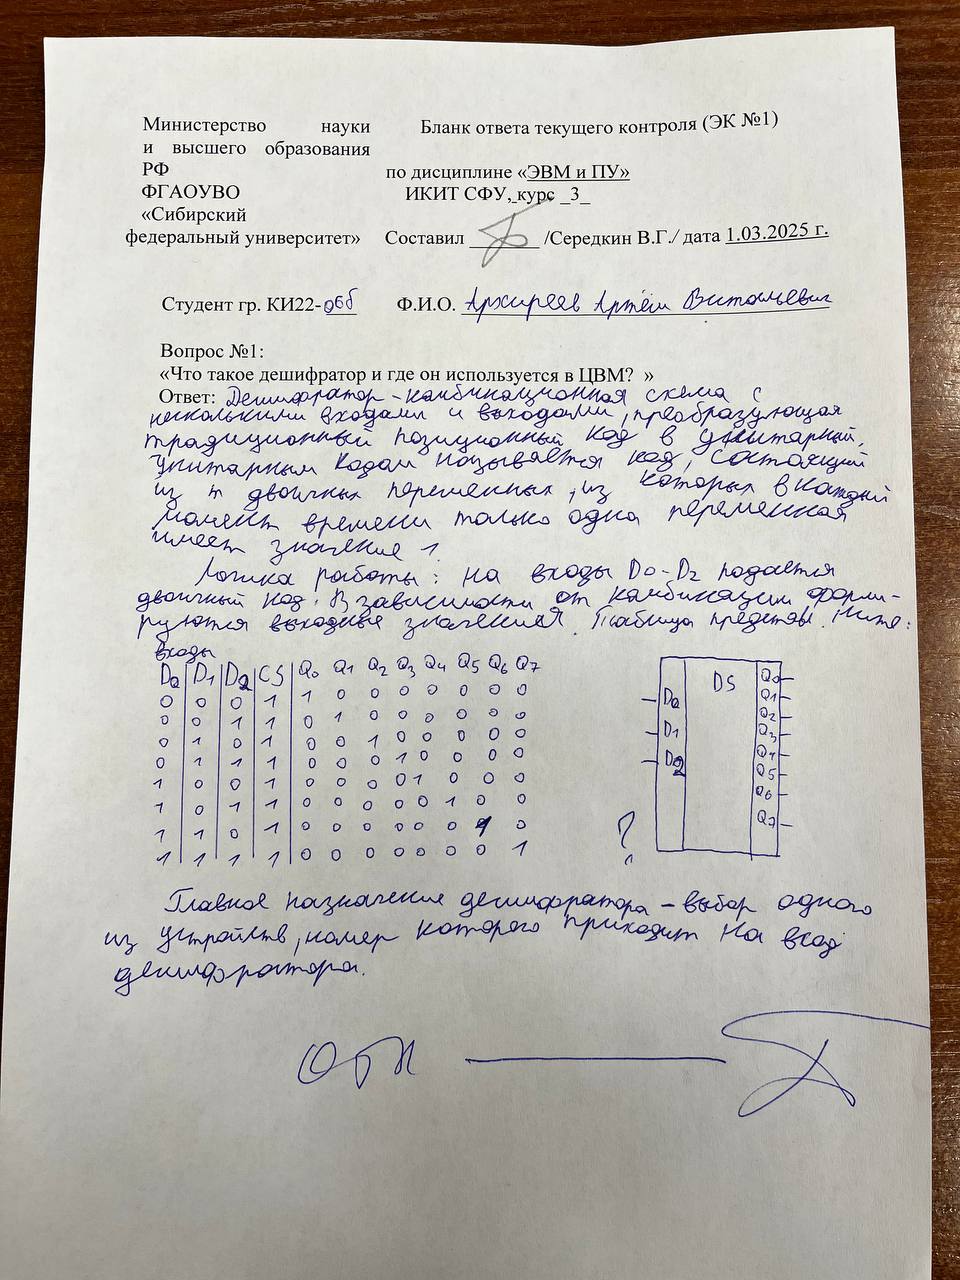 Министерство науки
и высшего образования
РФ
ФГАОУВО
«Сибирский
федеральный университет»
Бланк ответа текущего контроля (ЭК №1)
по дисциплине «ЭВМ и ПУ»
ИКИТ СФУ, курс _3_
Составил ______ /Середкин В.Г./ дата 1.03.2025 г.
Студент гр. КИ22-06б Ф.И.О. Архиреев Артём Витальевич
Вопрос №1:
«Что такое дешифратор и где он используется в ЦВМ? »
Ответ: Дешифратор - комбинационная схема с
несколькими входами и выходами, преобразующая
традиционный позиционный код в унитарный.
Унитарным кодом называется код, состоящий
из m двоичных переменных, из которых в каждый
момент времени только одна переменная
имеет значение 1.
Логика работы: на входы D0-D2 подается
двоичный код. В зависимости от комбинации форми-
руются выходные значения. Таблица представ. ниже:
входы
D0 D1 D2 CS Q0 Q1 Q2 Q3 Q4 Q5 Q6 Q7
0 0 0 1 1 0 0 0 0 0 0 0
0 0 1 1 0 1 0 0 0 0 0 0
0 1 0 1 0 0 1 0 0 0 0 0
0 1 1 1 0 0 0 1 0 0 0 0
1 0 0 1 0 0 0 0 1 0 0 0
1 0 1 1 0 0 0 0 0 1 0 0
1 1 0 1 0 0 0 0 0 0 1 0
1 1 1 1 0 0 0 0 0 0 0 1
DS
D0
D1
D2
Q0
Q1
Q2
Q3
Q4
Q5
Q6
Q7
?
Главное назначение дешифратора - выбор одного
из устройств, номер которого приходит на вход
дешифратора.